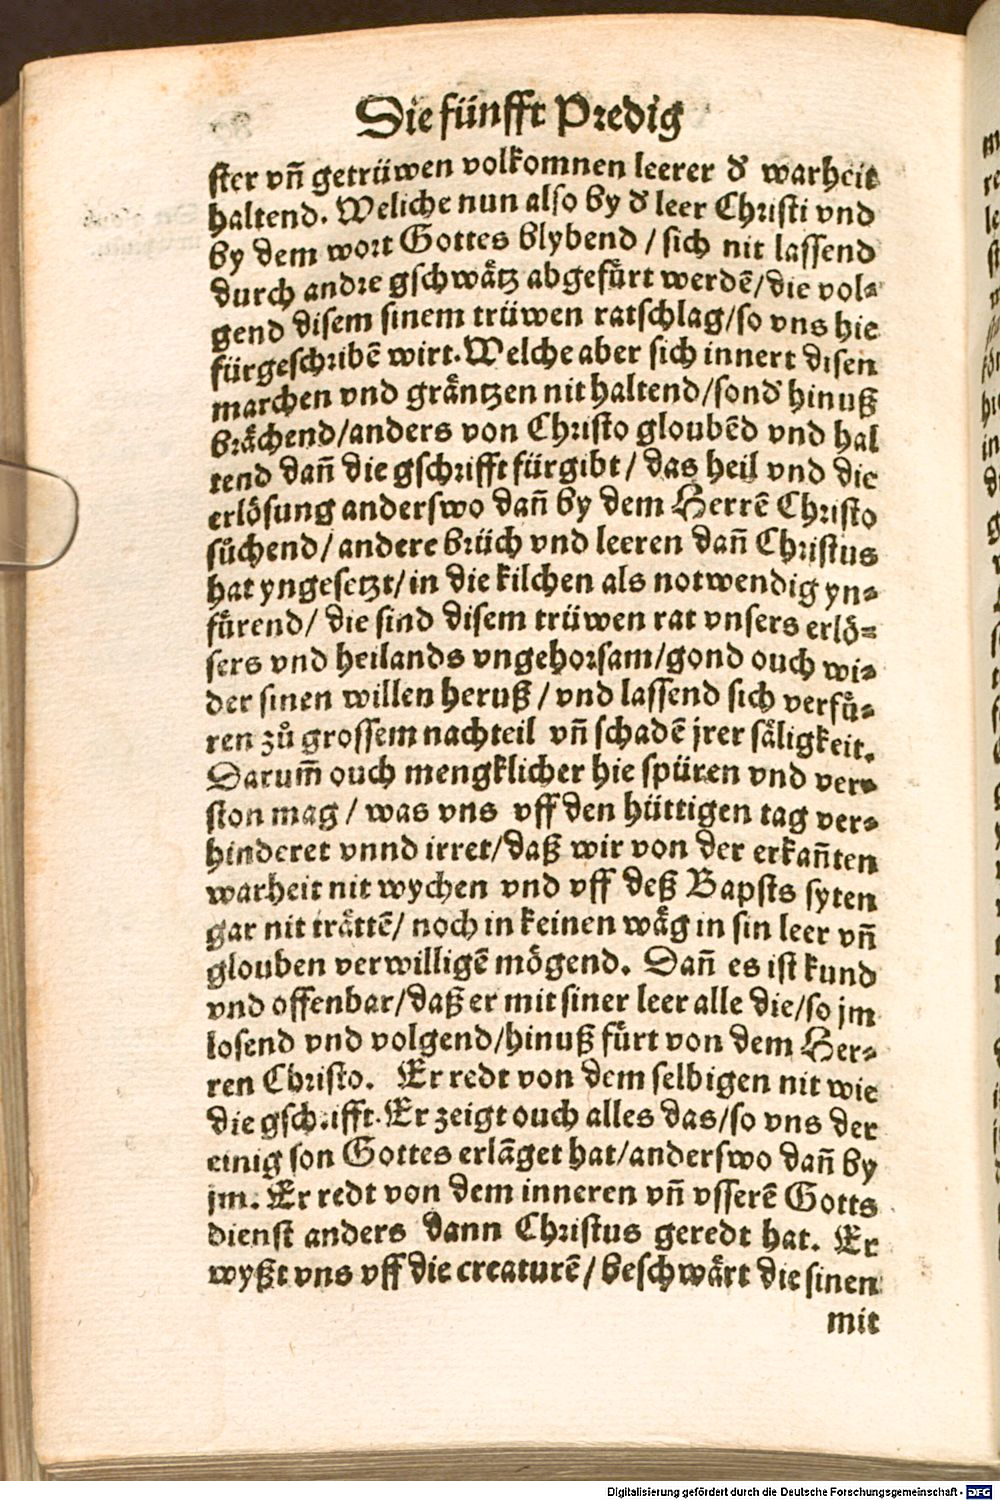 Die fünfft Predig
ster vñ getrüwen volkomnen leerer d᷎ warheit
haltend. Weliche nun also by d᷎ leer Christi vnd
by dem wort Gottes blybend / sich nit lassend
durch andre gschwaͤtz abgefuͤrt werdẽ / die vol⸗
gend disem sinem trüwen ratschlag / so vns hie
fürgeschribẽ wirt. Welche aber sich innert disen
marchen vnd graͤntzen nit haltend / sond᷎ hinuß
braͤchend / anders von Christo gloubẽd vnd hal
tend dañ die gschrifft fürgibt / das heil vnd die
erloͤsung anderswo dañ by dem Herrẽ Christo
suͦchend / andere brüch vnd leeren dañ Christus
hat yngesetzt / in die kilchen als notwendig yn⸗
fuͤrend / die sind disem trüwen rat vnsers erloͤ⸗
sers vnd heilands vngehorsam / gond ouch wi⸗
der sinen willen heruß / vnd lassend sich verfuͤ⸗
ren zuͦ grossem nachteil vñ schadẽ jrer saͤligkeit.
Darum̃ ouch mengklicher hie spüren vnd ver⸗
ston mag / was vns vff den hüttigen tag ver⸗
hinderet vnnd irret / daß wir von der erkañten
warheit nit wychen vnd vff deß Bapsts syten
gar nit traͤttẽ / noch in keinen waͤg in sin leer vñ
glouben verwilligẽ moͤgend. Dañ es ist kund
vnd offenbar / daß er mit siner leer alle die / so jm
losend vnd volgend / hinuß fuͤrt von dem Her⸗
ren Christo. Er redt von dem selbigen nit wie
die gschrifft. Er zeigt ouch alles das / so vns der
einig son Gottes erlãget hat / anderswo dañ by
jm. Er redt von dem inneren vñ vsserẽ Gotts
dienst anders dann Christus geredt hat. Er
wyßt vns vff die creaturẽ / beschwaͤrt die sinen
mit
Digitalisierung gefördert durch die Deutsche Forschungsgemeinschaft - DFG